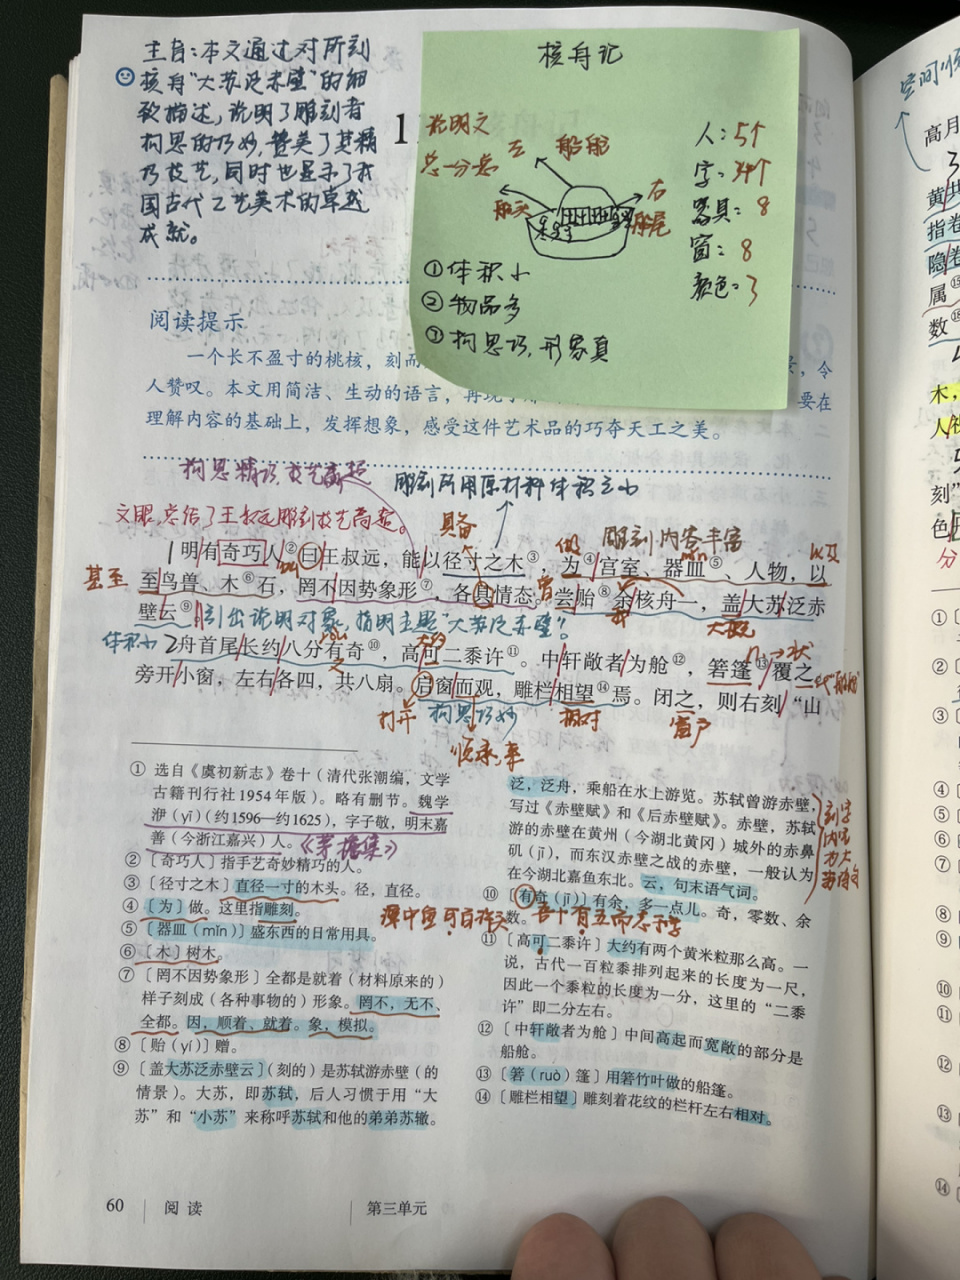 主旨:本文通过对所刻
核舟“大苏泛赤壁”的细
致描述,说明了雕刻者
构思的巧妙,赞美了其精
巧技艺,同时也显示了我
国古代工艺美术的卓越
成就。
1
核舟记
说明文
总一分总
船舱
船头
右
船尾
人:5个
字:34个
窗:8
颜色:3
①体积小
②物品多
③构思巧,形象真
阅读提示
一个长不盈寸的桃核,刻而
,令
人赞叹。本文用简洁、生动的语言,再现了
要在
理解内容的基础上,发挥想象,感受这件艺术品的巧夺天工之美。
构思精巧,技艺高超
雕刻所用原材料体积之小
文眼,总结了王叔远雕刻技艺高超。
具备
做
雕刻内容丰富
以及
1明有奇巧人②曰王叔远,能以径寸之木③,为④宫室、器皿⑤、人物,以
甚至
至鸟兽、木⑥石,罔不因势象形⑦,各具情态。尝贻⑧余核舟一,盖大苏泛赤
曾
壁云⑨。
引出说明对象,指明主题“大苏泛赤壁”
体积小
大约
2舟首尾长约八分有奇⑩,高可二黍许⑪。中轩敞者为舱⑫,箬篷⑬覆之。
旁开小窗,左右各四,共八扇。启窗而观,雕栏相望⑭焉。闭之,则右刻“山
打开
构思巧妙
相对
窗户
顺承,来
① 选自《虞初新志》卷十(清代张潮编,文学
古籍刊行社1954年版)。略有删节。魏学
洢(yī)(约1596—约1625),字子敬,明末嘉
善(今浙江嘉兴)人。《茅檐集》
② 〔奇巧人〕指手艺奇妙精巧的人。
③ 〔径寸之木〕直径一寸的木头。径,直径。
④ 〔为〕做。这里指雕刻。
⑤ 〔器皿(mǐn)〕盛东西的日常用具。
⑥ 〔木〕树木。
⑦ 〔罔不因势象形〕全都是就着(材料原来的)
样子刻成(各种事物的)形象。罔不,无不、
全都。因,顺着、就着。象,模拟。
⑧ 〔贻(yí)〕赠。
⑨ 〔盖大苏泛赤壁云〕(刻的)是苏轼游赤壁(的
情景)。大苏,即苏轼,后人习惯于用“大
苏”和“小苏”来称呼苏轼和他的弟弟苏辙。
泛,泛舟,乘船在水上游览。苏轼曾游赤壁,
写过《赤壁赋》和《后赤壁赋》。赤壁,苏轼
游的赤壁在黄州(今湖北黄冈)城外的赤鼻
矶(jī),而东汉赤壁之战的赤壁,一般认为
在今湖北嘉鱼东北。云,句末语气词。
⑩ 〔有奇(jī)〕有余,多一点儿。奇,零数、余
数。
潭中鱼可百许头
吾十有五而志于学
⑪ 〔高可二黍许〕大约有两个黄米粒那么高。一
说,古代一百粒黍排列起来的长度为一尺,
因此一个黍粒的长度为一分,这里的“二黍
许”即二分左右。
⑫ 〔中轩敞者为舱〕中间高起而宽敞的部分是
船舱。
⑬ 〔箬(ruò)篷〕用箬竹叶做的船篷。
⑭ 〔雕栏相望〕雕刻着花纹的栏杆左右相对。
60
阅读
第三单元
高月
黄共
指卷
隐卷
属
数
木,
刻”
色
分